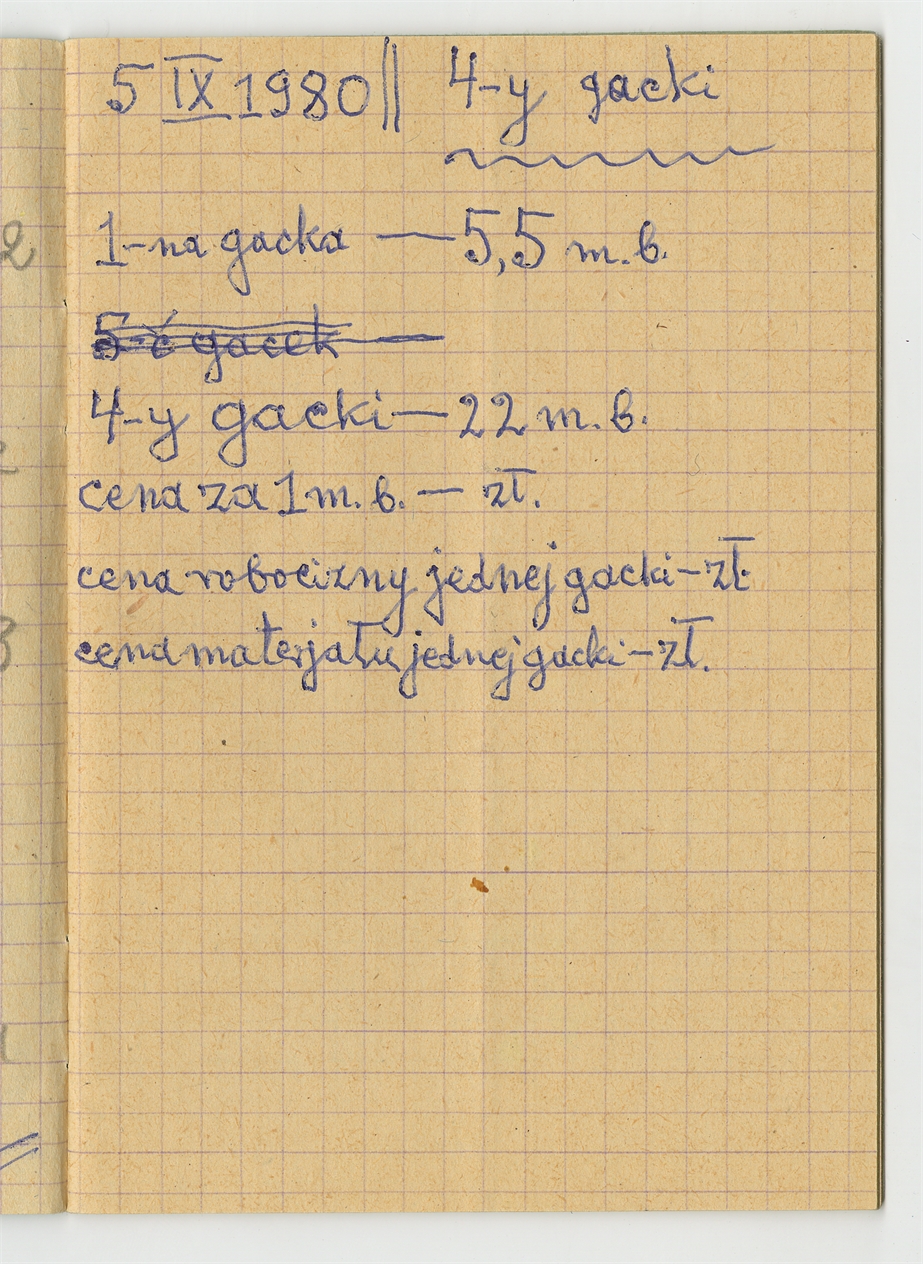 5 IX 1980 || 4-y gacki
1-na gacka — 5,5 m.b.
5-ć gacek —
4-y gacki — 22 m.b.
cena za 1 m.b. — zł.
cena robocizny jednej gacki – zł.
cena materjału jednej gacki – zł.